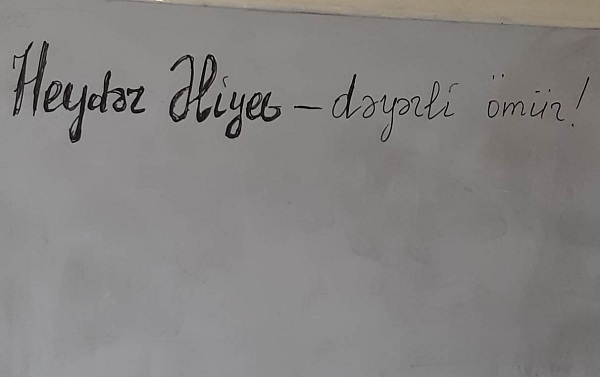 Heydər Əliyev – dəyərli ömür!